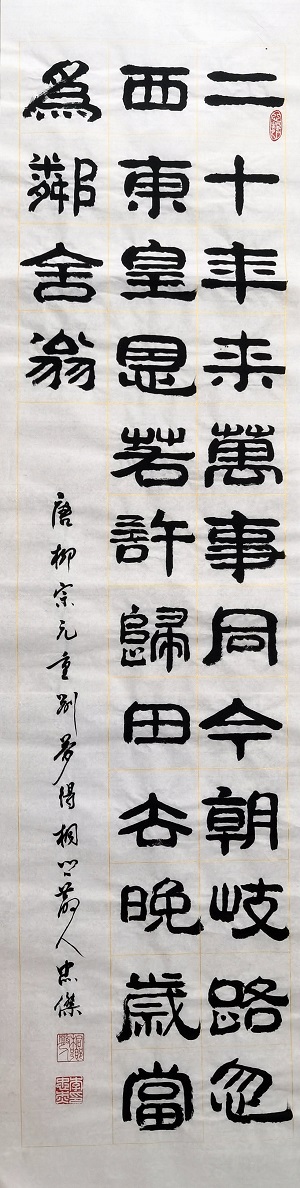 二十年来萬事同今朝岐路忽
西東皇恩若許歸田去晚歲當
爲鄰舍翁
唐柳宗元重别夢得桐散人忠傑